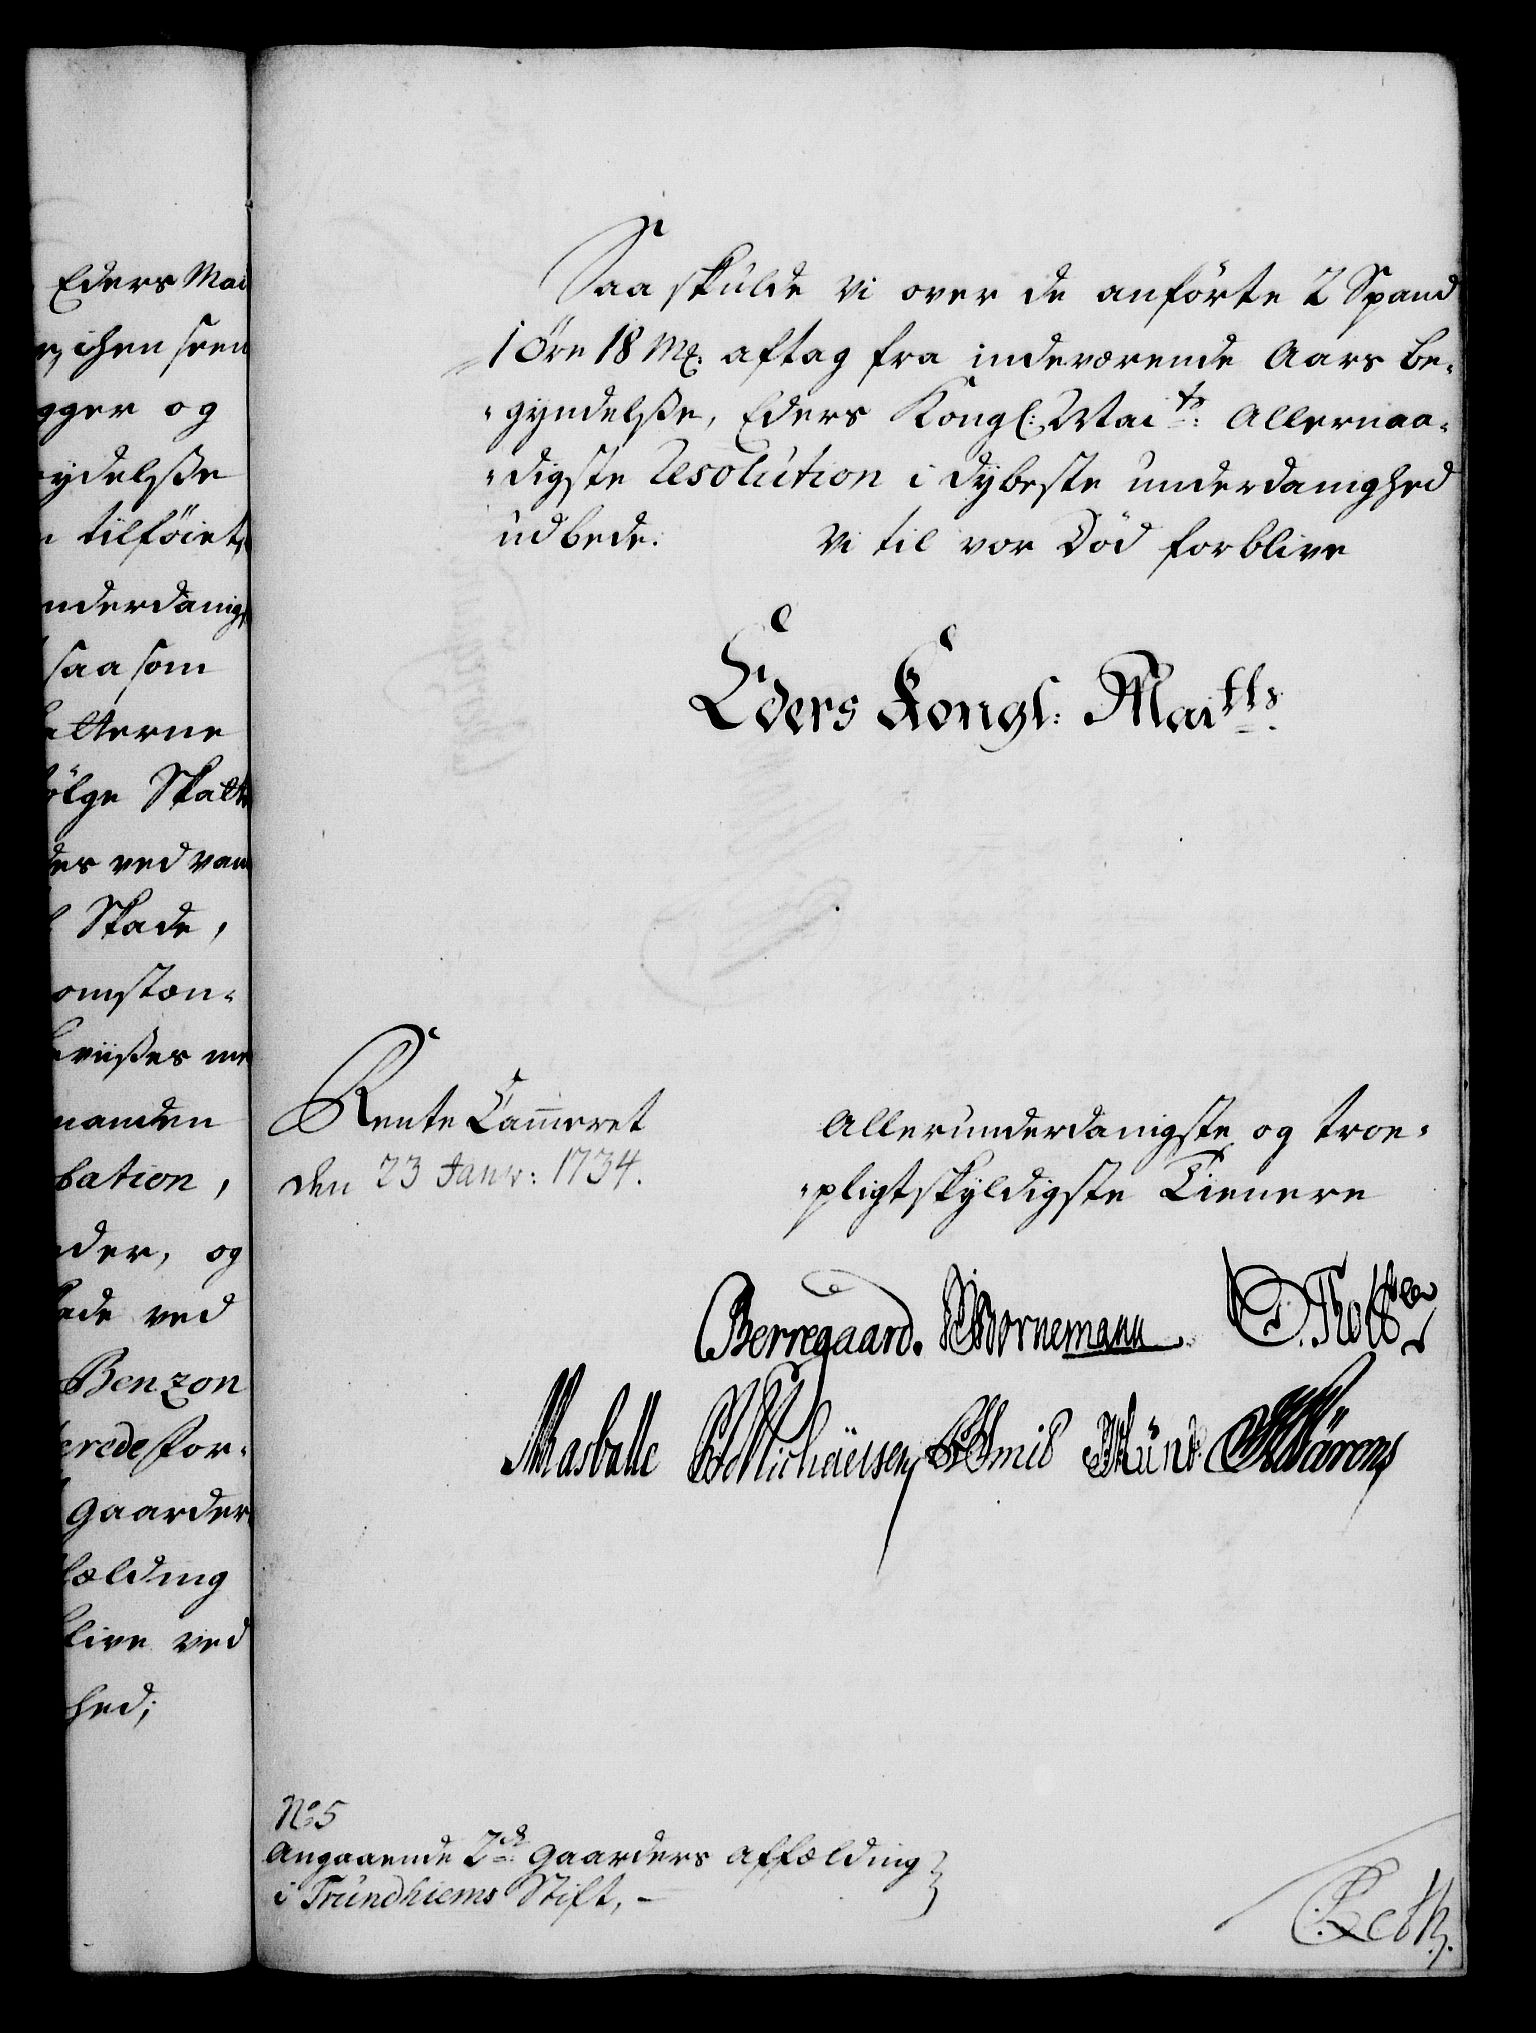 Eders Mai
ichen seen
gger og
ydelsze
tilföiet,
nderdanig,
saa som
atterne
ölge Skatt
des ved van
Skade,
omstæn-
eviiszes me
manden
bation,
der, og
ade ved
Benzon
erede for-
Gaarder
fælding
live ved
hed;
Saa skulde vi over de anförte 2 Spand
1 Öre 18 Mk: aftag fra indeværende Aars be-
-gyndelsze, Eders Kongl: Maits: Allernaa-
-digste Resolution i dybeste underdanighed
udbede. Vi til vor Död forblive
Eders Kongl: Maitts:
Rente Cammeret
den 23 Janv: 1734.
Allerunderdanigste og troe-
-pligtskyldigste Tienere
Berregaard. Bornemann
Münt
No: 5
Angaaende 2de Gaarders affælding
i Trundhiems Stift, -